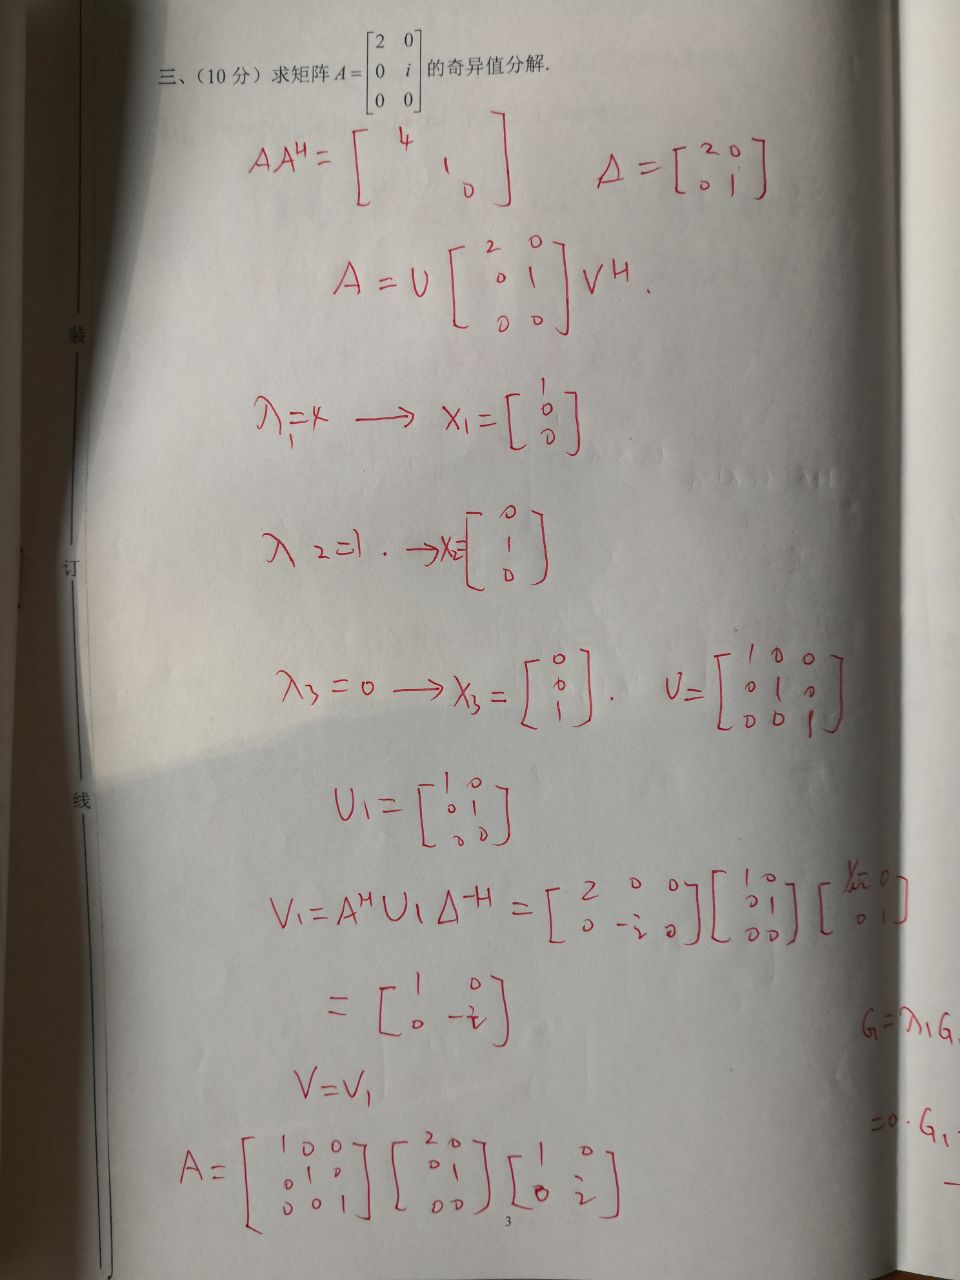 三、(10 分) 求矩阵 A = [2 0; 0 i; 0 0] 的奇异值分解.
AAᴴ = [4 1 0] Δ = [2 0; 0 1]
A = U [2 0; 0 1; 0 0] Vᴴ.
λ₁ = 4 → X₁ = [1; 0; 0]
λ₂ = 1. → X₂ = [0; 1; 0]
λ₃ = 0 → X₃ = [0; 0; 1]. U = [1 0 0; 0 1 0; 0 0 1]
U₁ = [1 0; 0 1; 0 0]
V₁ = AᴴU₁Δ⁻ᴴ = [2 0 0; 0 -i 0] [1 0; 0 1; 0 0] [0; 0 1]
= [1 0; 0 -i]
V = V₁
A = [1 0 0; 0 1 0; 0 0 1] [2 0; 0 1; 0 0] [1 0; 0 i]
G = λ₁G
= 0 · G₁
装
订
线
3